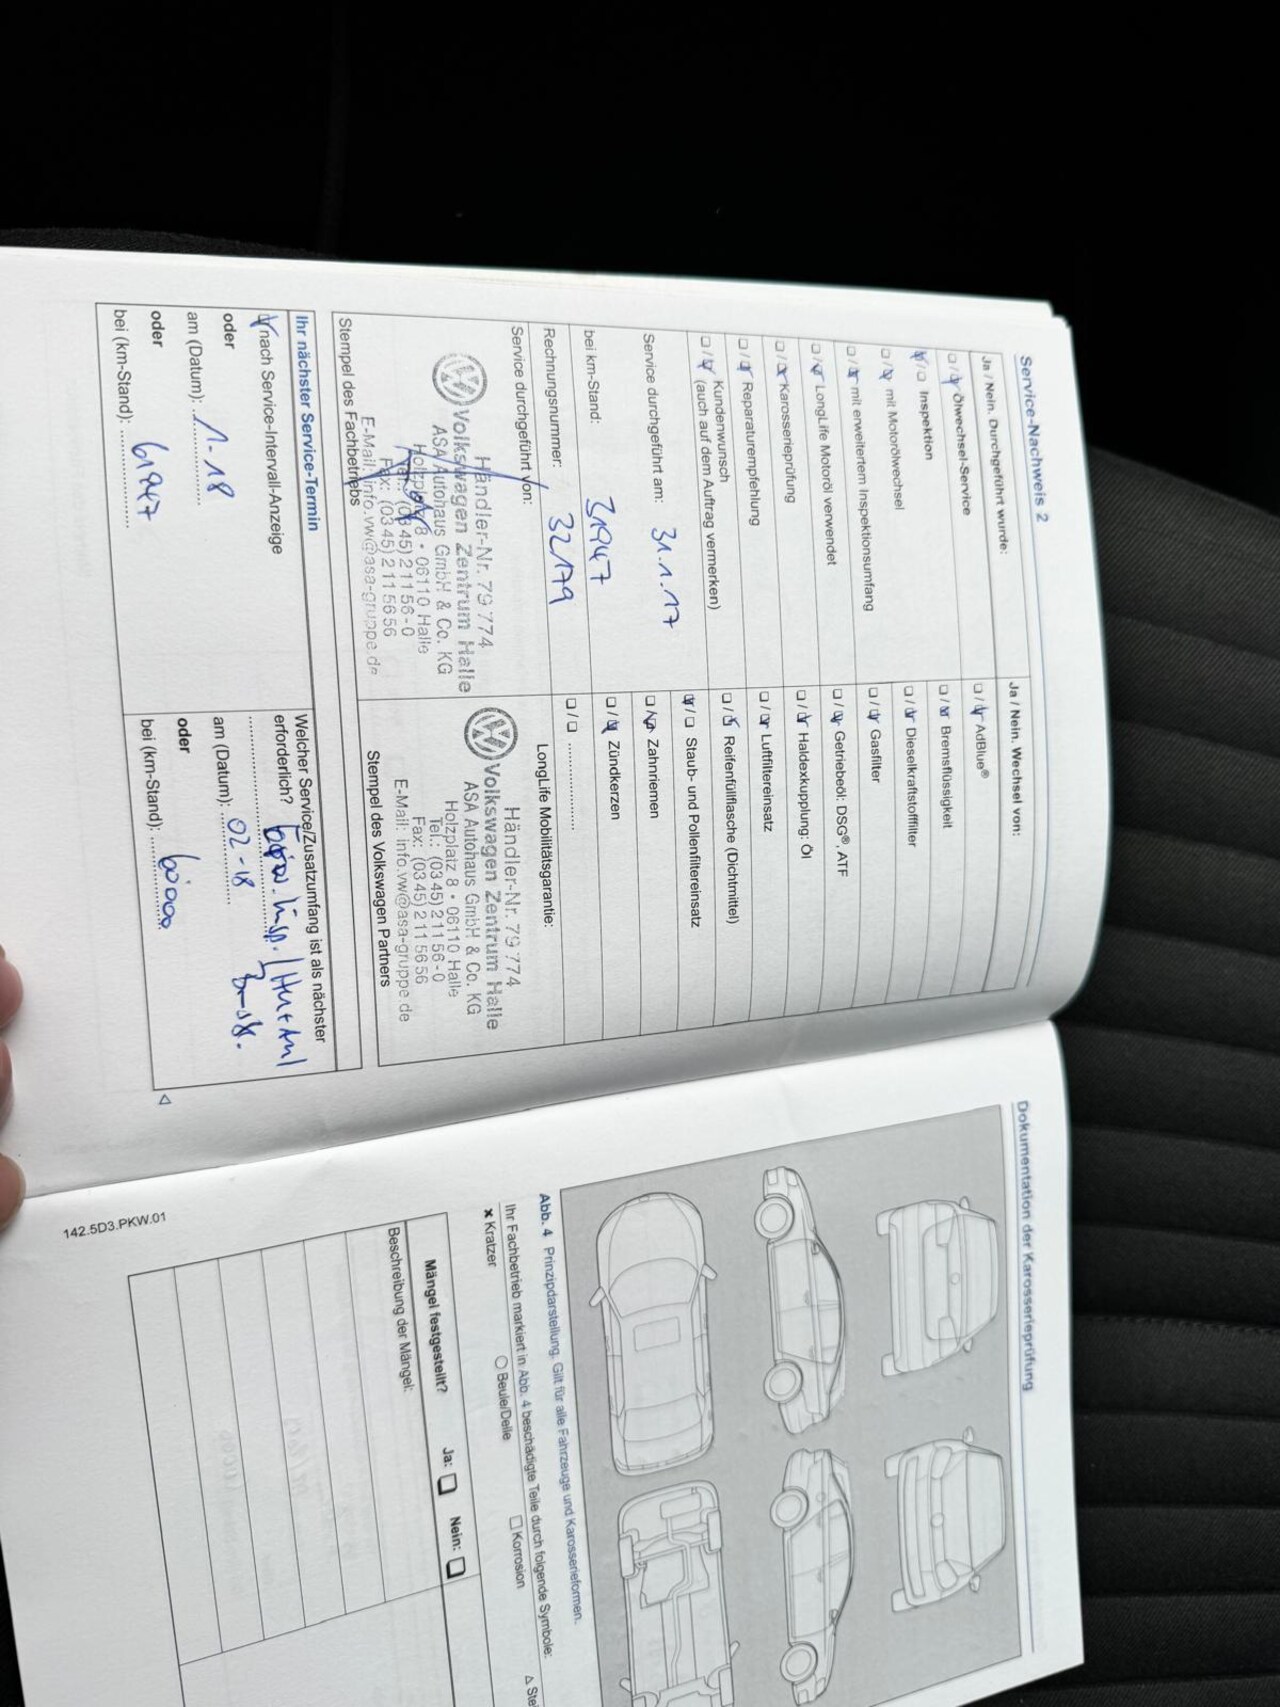 Service-Nachweis 2
Ja / Nein. Durchgeführt wurde:
Ölwechsel-Service
Inspektion
mit Motorölwechsel
mit erweitertem Inspektionsumfang
LongLife Motoröl verwendet
Karosserieprüfung
Reparaturempfehlung
Kundenwunsch
(auch auf dem Auftrag vermerken)
Service durchgeführt am: 31.1.17
bei km-Stand: 31947
Rechnungsnummer: 32179
Service durchgeführt von:
Händler-Nr. 79 774
Volkswagen Zentrum Halle
ASA Autohaus GmbH & Co. KG
Holzplatz 8 • 06110 Halle
Tel.: (03 45) 2 11 56-0
Fax: (03 45) 2 11 56 56
E-Mail: info.vw@asa-gruppe.de
Stempel des Fachbetriebs
Ja / Nein. Wechsel von:
AdBlue®
Bremsflüssigkeit
Dieselkraftstofffilter
Gasfilter
Getriebeöl: DSG®, ATF
Haldexkupplung: Öl
Luftfiltereinsatz
Reifenfüllflasche (Dichtmittel)
Staub- und Pollenfiltereinsatz
Zahnriemen
Zündkerzen
LongLife Mobilitätsgarantie:
Händler-Nr. 79 774
Volkswagen Zentrum Halle
ASA Autohaus GmbH & Co. KG
Holzplatz 8 • 06110 Halle
Tel.: (03 45) 2 11 56-0
Fax: (03 45) 2 11 56 56
E-Mail: info.vw@asa-gruppe.de
Stempel des Volkswagen Partners
Ihr nächster Service-Termin
nach Service-Intervall-Anzeige
oder
am (Datum): 1.18
oder
bei (km-Stand): 61947
Welcher Service/Zusatzumfang ist als nächster
erforderlich? Insp.
am (Datum): 02-18
oder
bei (km-Stand): 60000
Dokumentation der Karosserieprüfung
Abb. 4 Prinzipdarstellung. Gilt für alle Fahrzeuge und Karosserieformen.
Ihr Fachbetrieb markiert in Abb. 4 beschädigte Teile durch folgende Symbole:
Kratzer Beule/Delle Korrosion
Mängel festgestellt? Ja: Nein:
Beschreibung der Mängel:
142.5D3.PKW.01